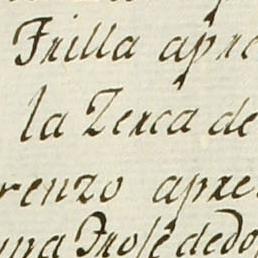 Trilla apre
la Zerca de
renzo apre
una Prose dedo